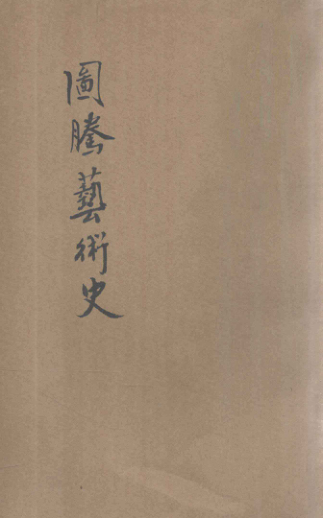 圖騰藝術史